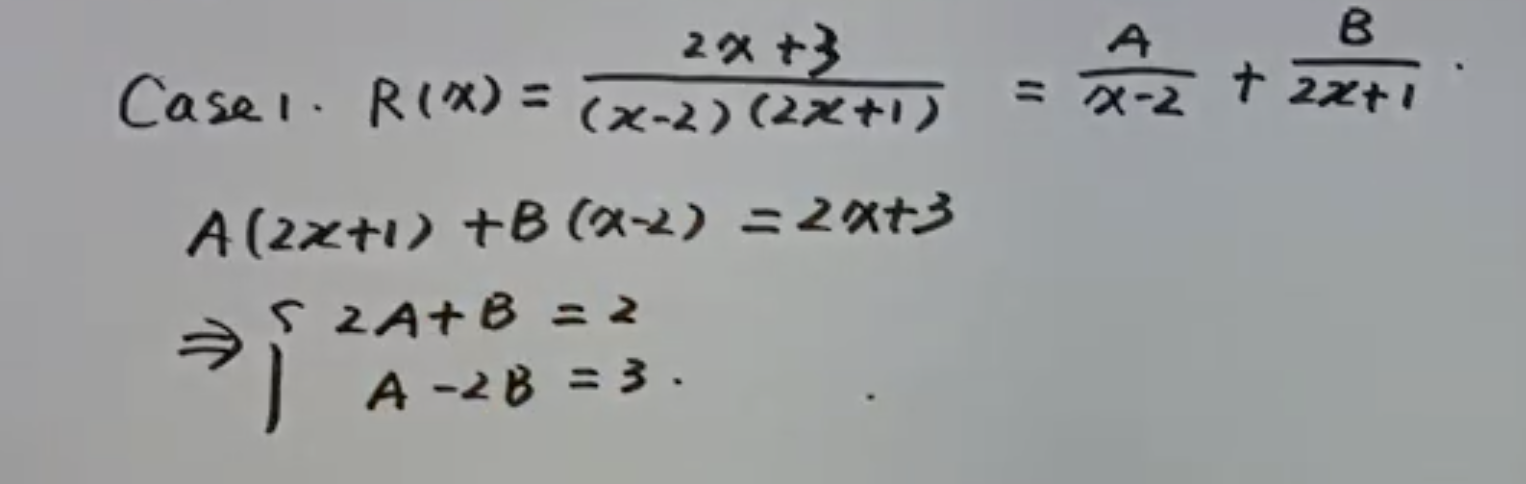 Case 1. R(x) = \frac{2x+3}{(x-2)(2x+1)} = \frac{A}{x-2} + \frac{B}{2x+1}.
A(2x+1) + B(x-2) = 2x+3
⇒ { 2A+B = 2
A-2B = 3.